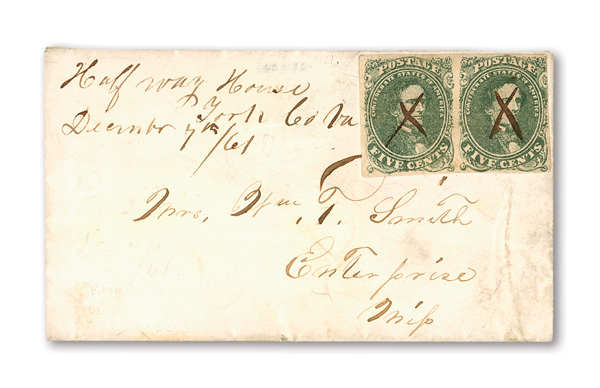 Half way House
York Co Va
December 7th
/61
Mrs. Wm. T. Smith
Enterprise
Miss
POSTAGE
CONFEDERATE STATES OF AMERICA
FIVE CENTS
POSTAGE
CONFEDERATE STATES OF AMERICA
FIVE CENTS